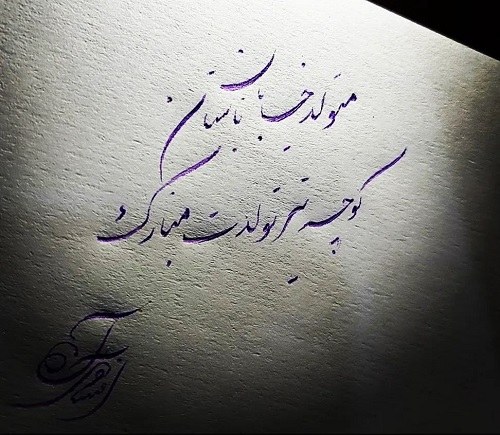 متولد خیابان تابستان
کوچه تیر تولدت مبارک